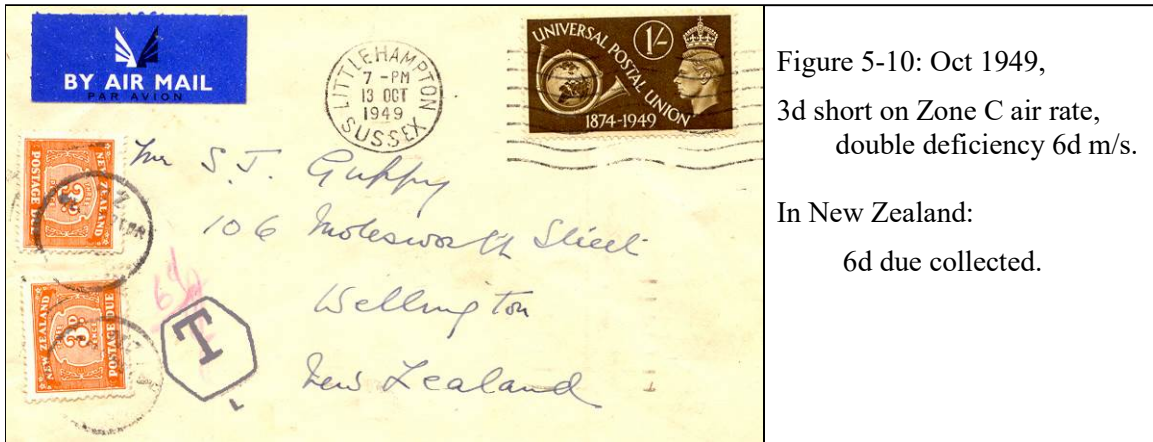 BY AIR MAIL
PAR AVION
LITTLEHAMPTON
7 - PM
13 OCT
1949
SUSSEX
UNIVERSAL POSTAL UNION
1/-
1874-1949
NEW ZEALAND
3D
POSTAGE DUE
NEW ZEALAND
3D
POSTAGE DUE
6d
T
L
S. J. Guppy
106 Molesworth Street
Wellington
New Zealand
Figure 5-10: Oct 1949,
3d short on Zone C air rate,
double deficiency 6d m/s.
In New Zealand:
6d due collected.